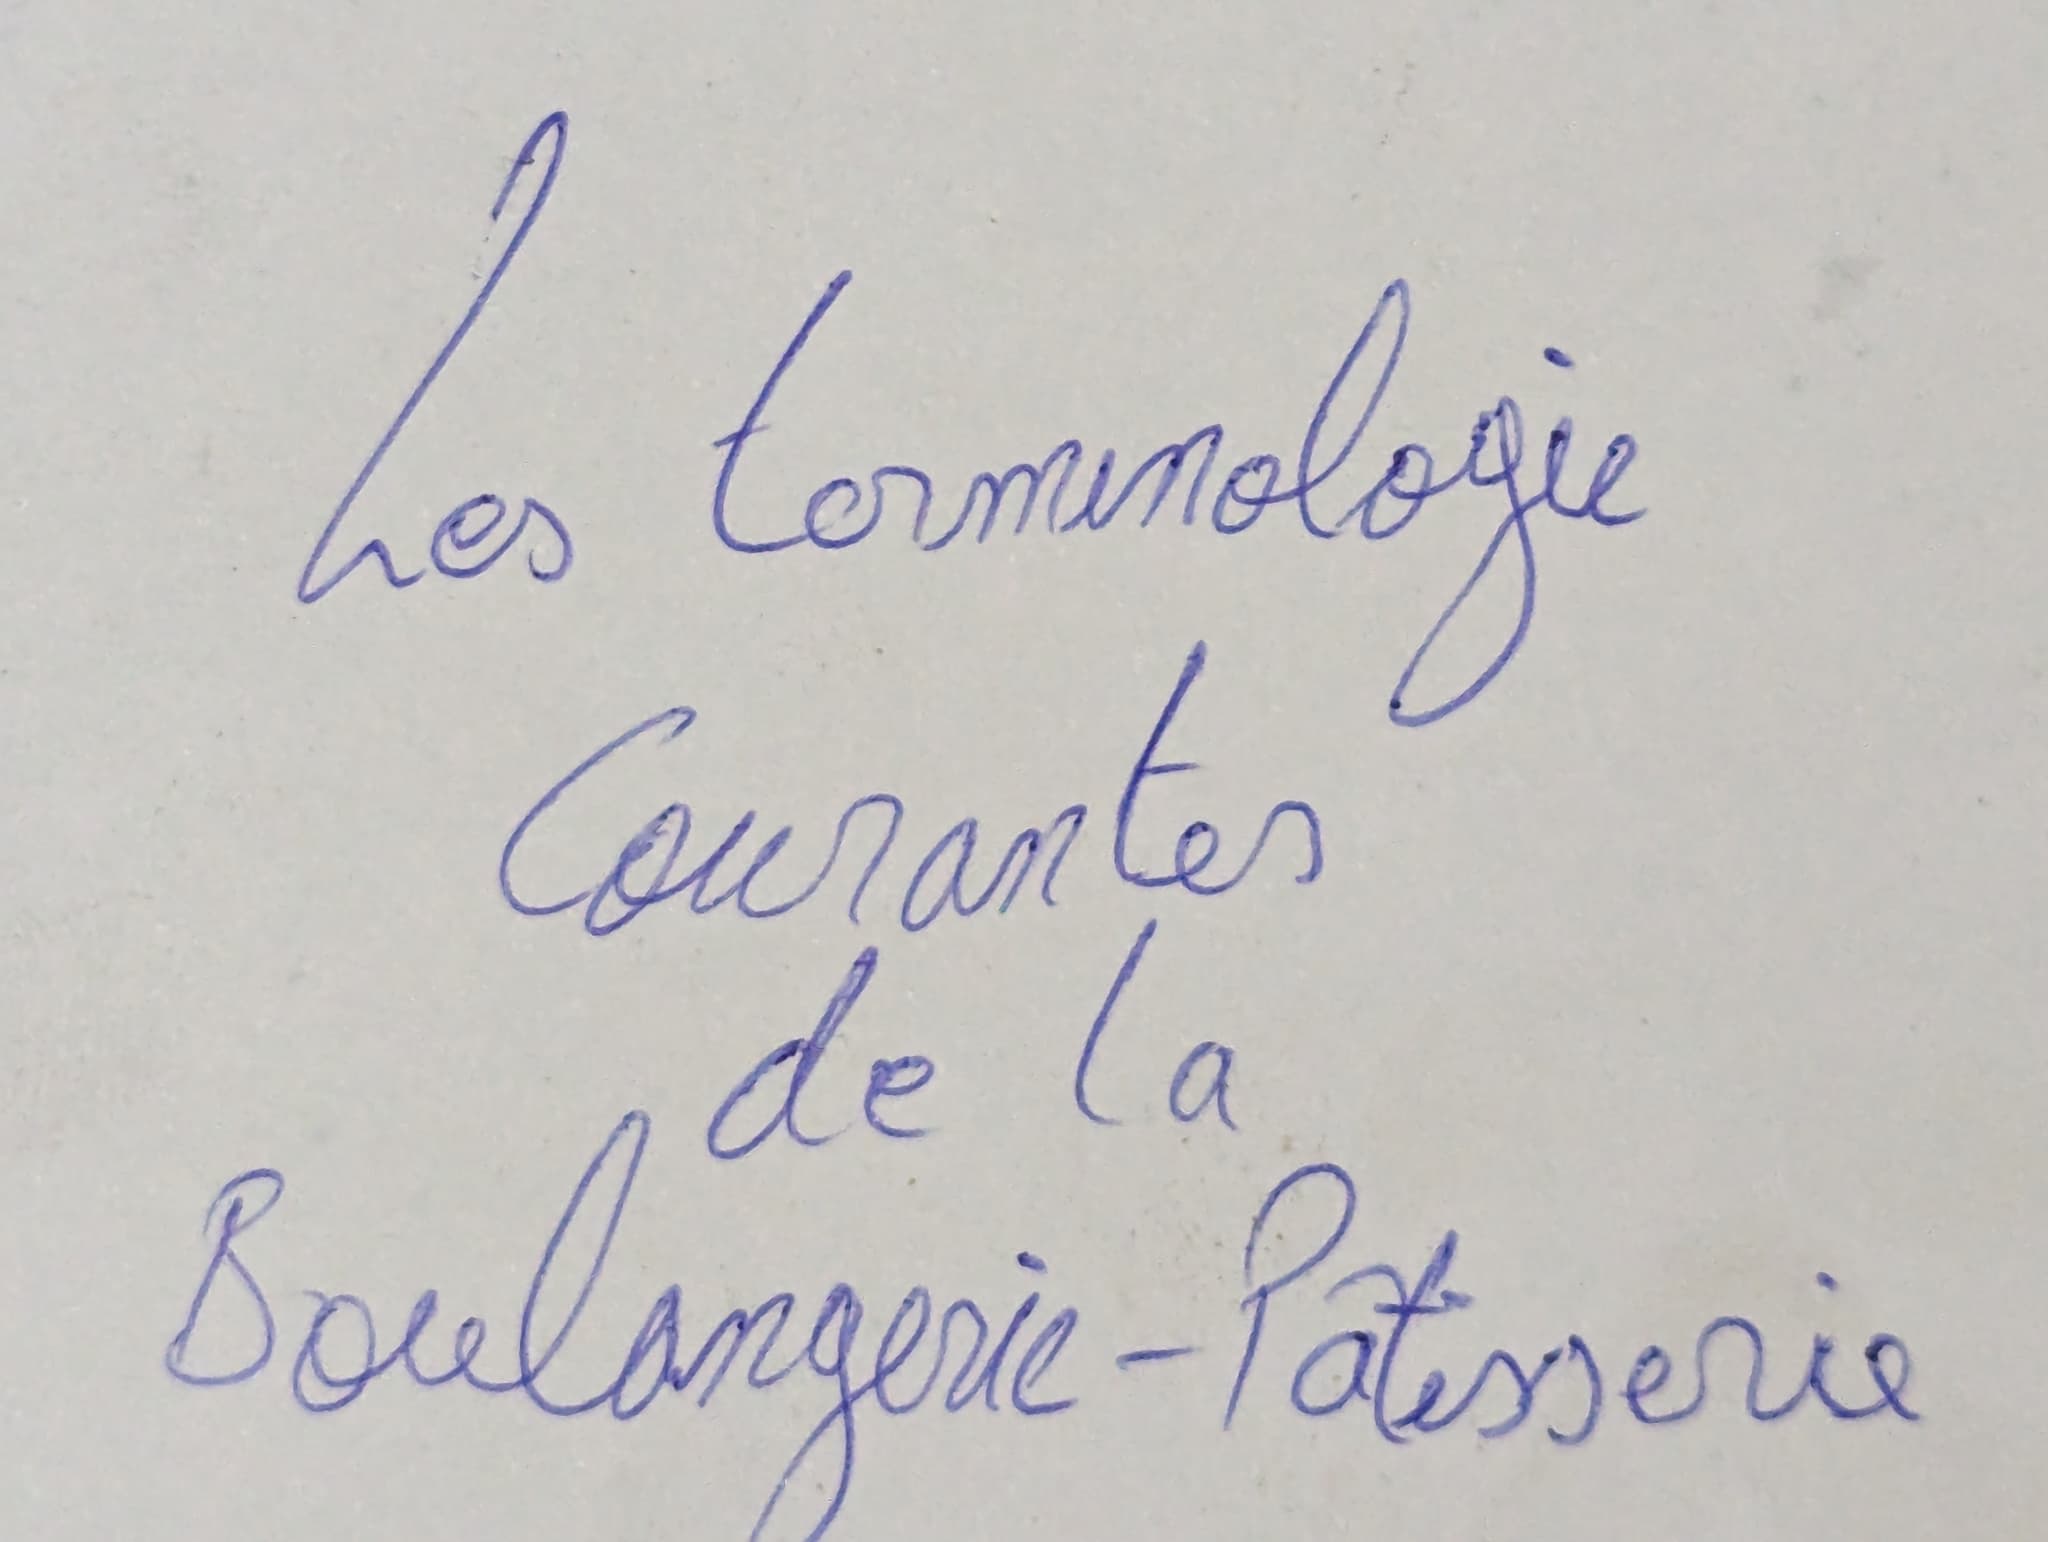 Les terminologie
Courantes
de la
Boulangerie-Pâtisserie